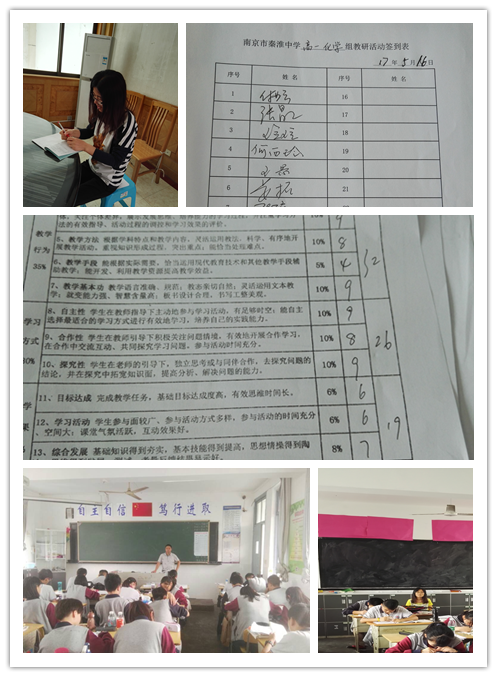 南京市秦淮中学 高一化学 组教研活动签到表
17 年 5 月 16 日
序号 姓 名 序号 姓 名
1 16
2 17
3 18
4 19
5 20
6 21
教学
行为
35%
法的有效指导、活动过程的调控与学习效果的评价。 10% 9
5、教学方法 根据学科特点和教学内容，灵活运用教法，科学、有序地开 10% 8
6、教学手段 能根据实际需要，恰当运用现代教育技术和其他教学手段辅 5% 4
助教学；能开发、利用教学资源提高教学效益。
7、教学基本功 教学语言准确、规范；教态亲切自然；灵活运用文本教 10% 9
学；应变能力强、智慧含量高；板书设计合理，书写工整美观。
32
学习
方式
30%
8、自主性 学生在教师指导下主动地参与学习活动，有足够时空；能自主 10% 9
选择最适合的学习方式进行有效地学习，培养自己的实践能力。
9、合作性 学生在教师引导下积极关注问题情境，有效地开展合作学习， 10% 8
在合作中交流互动、共同探究学习问题。参与活动时间充分。
10、探究性 学生在教师的引导下，独立思考或与同伴合作，去探究问题的 10% 9
结论，并在探究中拓宽知识面，提高分析、解决问题的能力。
26
11、目标达成 完成教学任务，基础目标达成度高，有效思维时间长。 6% 6
12、学习活动 学生参与面较广、参与活动方式多样，参与活动的时间充分 6% 6
、空间大；课堂气氛活跃，互动效果好。
13、综合发展 基础知识得到夯实，基本技能得到提高，思想情操得到陶 8% 7
19
自主自信 笃行进取